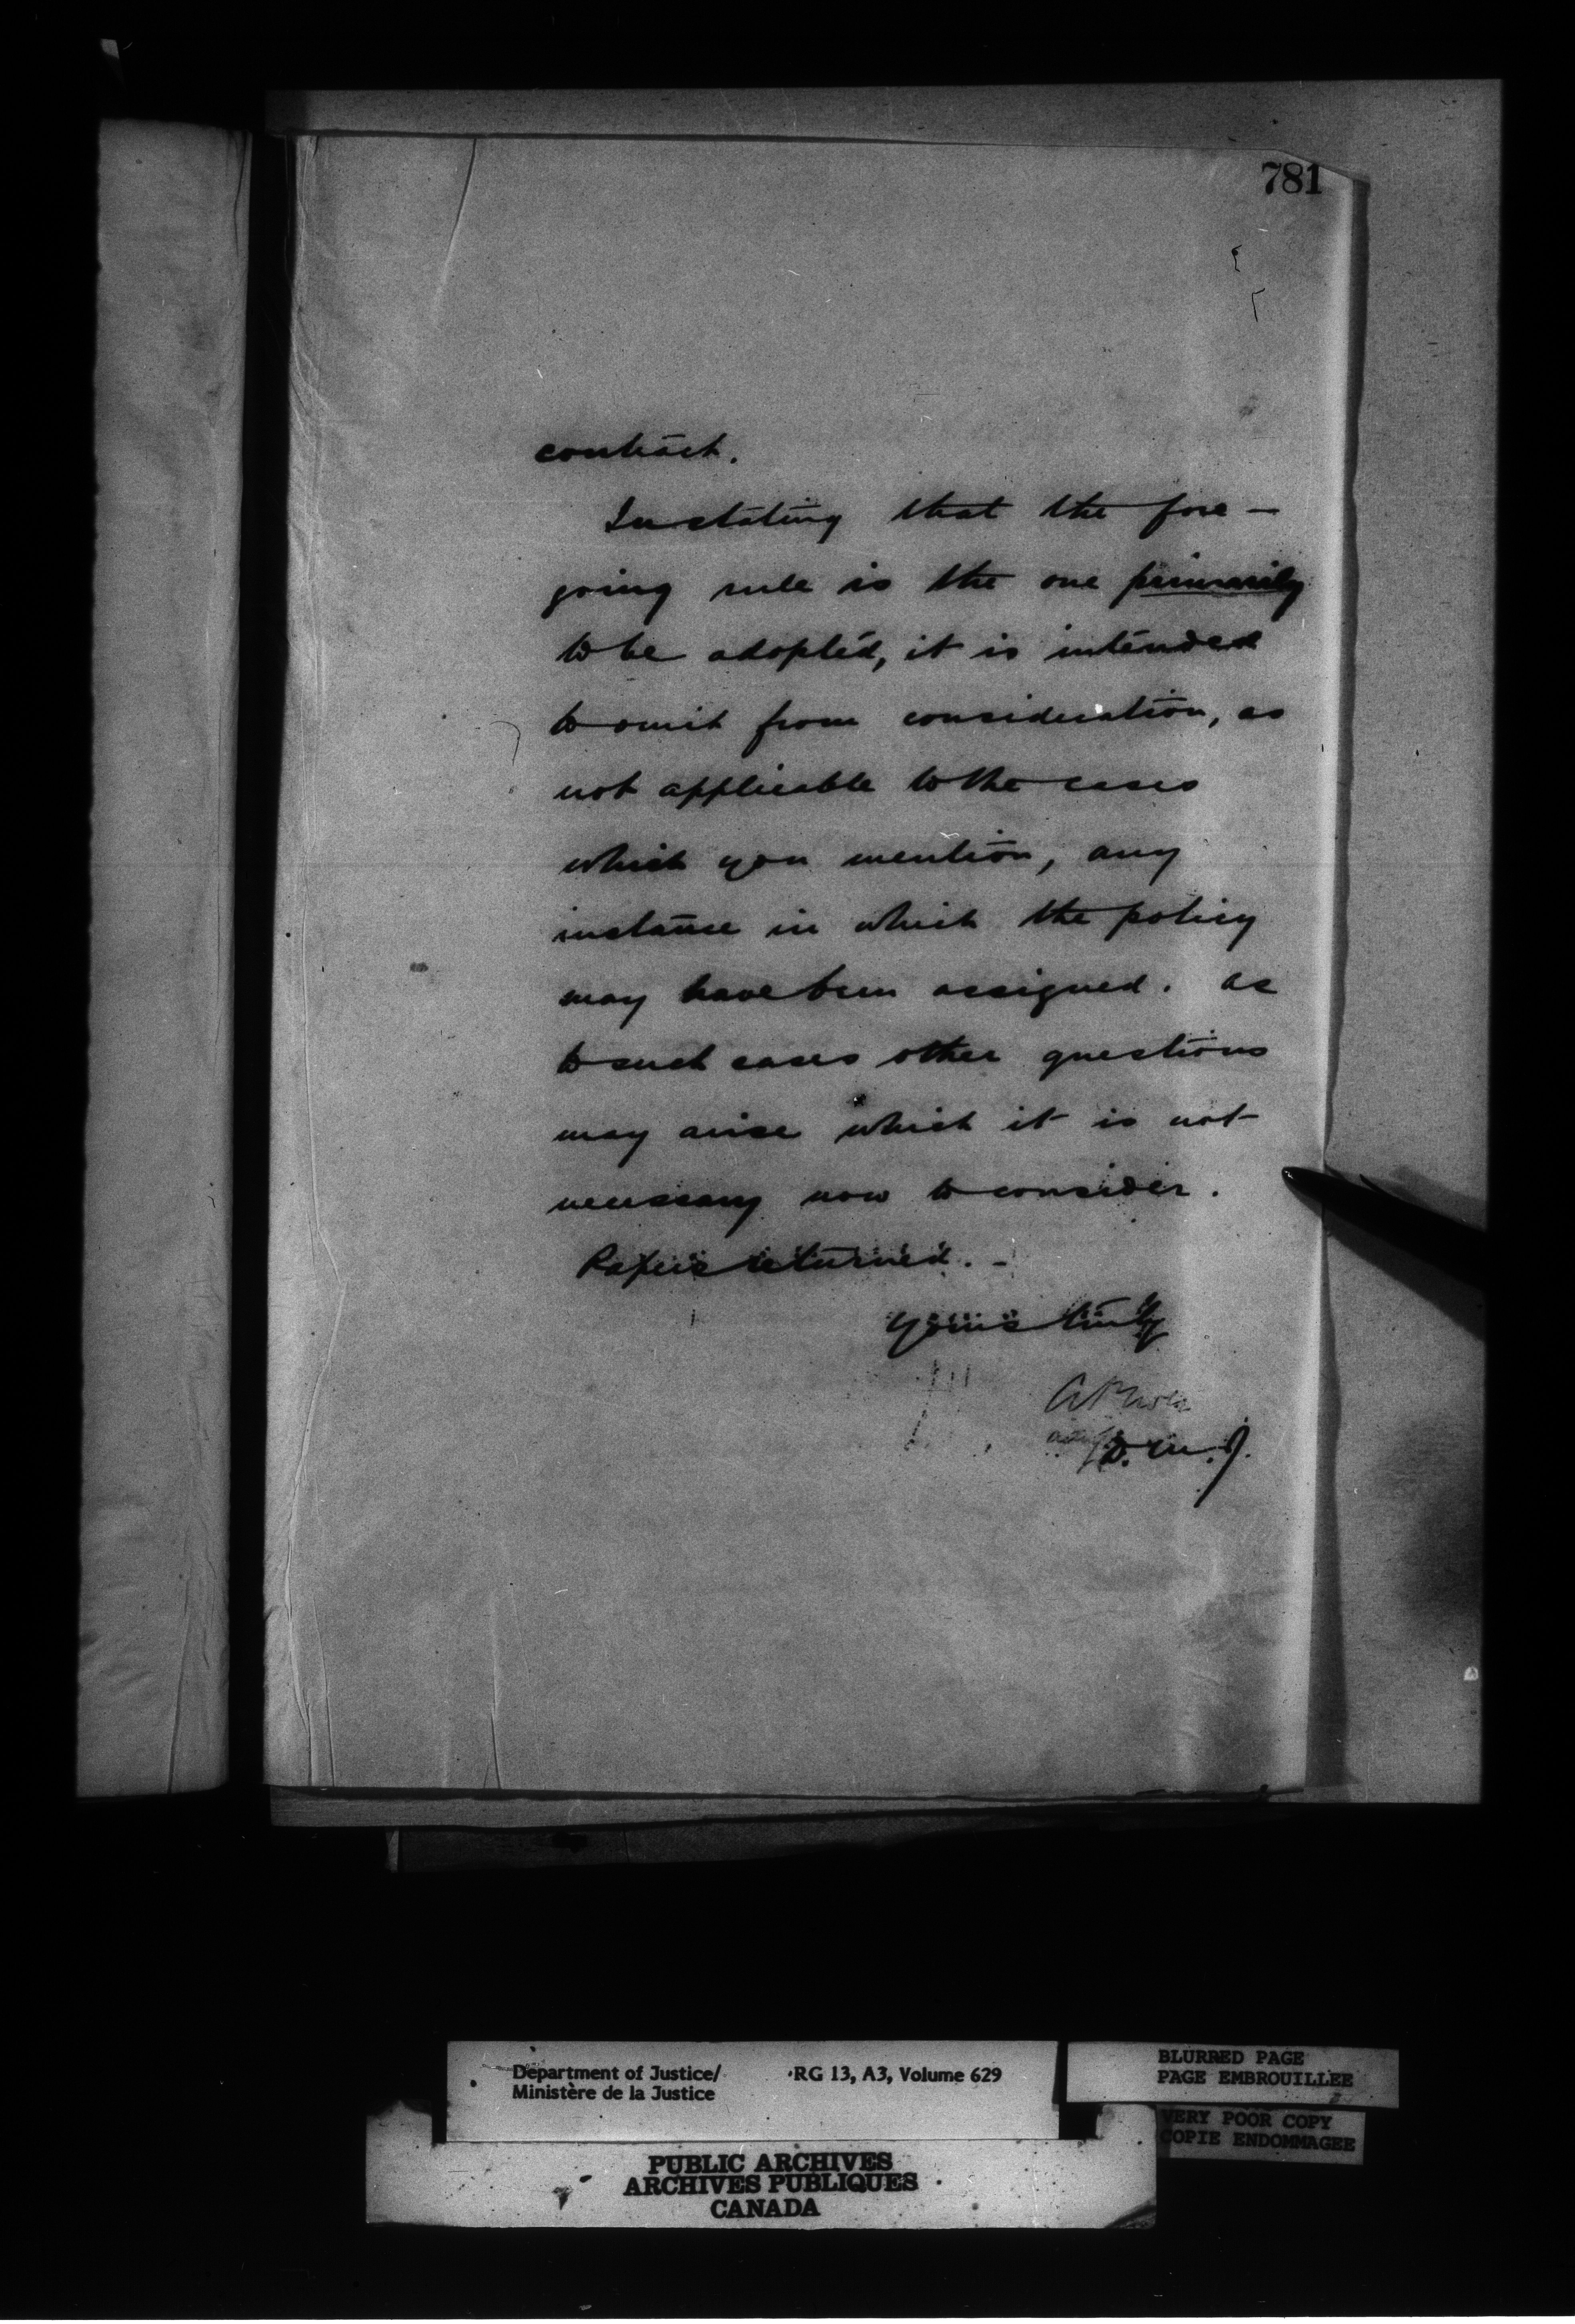 781
contract.
In stating that the fore-
going rule is the one primarily
to be adopted, it is intended
to omit from consideration, as
not applicable to the cases
which you mention, any
instance in which the policy
may have been assigned. As
to such cases other questions
may arise which it is not
necessary now to consider.
Papers returned. -
Yours truly
D.M.J.
Department of Justice/ RG 13, A3, Volume 629
Ministère de la Justice
BLURRED PAGE
PAGE EMBROUILLEE
VERY POOR COPY
COPIE ENDOMMAGEE
PUBLIC ARCHIVES
ARCHIVES PUBLIQUES
CANADA